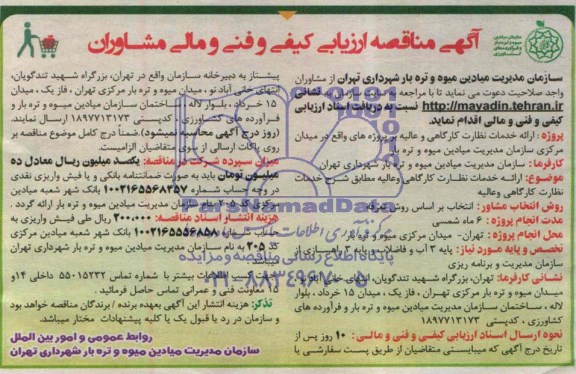 آگهی مناقصه ارزیابی کیفی و فنی و مالی مشاوران
سازمان مدیریت میادین میوه و تره بار شهرداری تهران از مشاوران
واجد صلاحیت دعوت می نماید تا با مراجعه نشانی
http://mayadin.tehran.ir نسبت به دریافت اسناد ارزیابی
کیفی و فنی و مالی اقدام نماید.
پروژه : ارائه خدمات نظارت کارگاهی و عالیه بر پروژه های واقع در میدان
مرکزی سازمان مدیریت میادین میوه و تره بار
کارفرما: سازمان مدیریت میادین میوه و تره بار شهرداری تهران
موضوع: ارائه خدمات نظارت کارگاهی وعالیه مطابق شرح خدمات
نظارت کارگاهی وعالیه
روش انتخاب مشاور : انتخاب بر اساس روش
مدت انجام پروژه : ۶ ماه شمسی
محل انجام پروژه : تهران- میدان مرکزی میوه و تره بار
تخصص و پایه مورد نیاز: پایه ۳ آب و فاضلاب پایه ۳ راهسازی از
سازمان مدیریت و برنامه ریزی
نشانی کارفرما: تهران، بزرگراه شهید تندگویان، انتهای خانی آباد نو،
میدان میوه و تره بار مرکزی تهران ، فاز یک ، میدان ۱۵ خرداد ، بلوار
لاله ، ساختمان سازمان میادین میوه و تره بار و فرآورده های
کشاورزی ، کدپستی ۱۸۹۷۷۱۳۱۷۳
نحوه ارسال اسناد ارزیابی کیفی و فنی و مالی : ۱۰ روز پس از
تاریخ درج آگهی که میبایستی متقاضیان از طریق پست سفارشی یا
پیشتاز به دبیرخانه سازمان واقع در تهران، بزرگراه شهید تندگویان،
انتهای خانی آباد نو ، میدان میوه و تره بار مرکزی تهران ، فاز یک ، میدان
۱۵ خرداد ، بلوار لاله ، ساختمان سازمان میادین میوه و تره بار و
فرآورده های کشاورزی ، کدپستی ۱۸۹۷۷۱۳۱۷۳ ارسال نمایند.
(روز درج آگهی محاسبه نمیشود). ضمناً درج کامل موضوع مناقصه بر
روی پاکات ارسالی از سوی متقاضیان الزامیست.
میزان سپرده شرکت در مناقصه: یکصد میلیون ریال معادل ده
میلیون تومان باید به صورت ضمانتنامه بانکی و یا فیش واریزی نقدی
در وجه حساب شماره ۱۰۰۲۱۶۵۵۶۸۲۵۷ بانک شهر شعبه میادین
مرکزی کد ۲۰۵ بنام سازمان مدیریت میادین میوه و تره بار ارائه گردد .
هزینه انتشار اسناد مناقصه: ۲۰۰.۰۰۰ ریال طی فیش واریزی به
حساب شماره ۱۰۰۲۱۶۵۵۵۶۸۵۸ بانک شهر شعبه میادین مرکزی
کد ۲۰۵ به نام سازمان مدیریت میادین میوه و تره بار شهرداری تهران
میباشد.
جهت کسب اطلاعات بیشتر با شماره تماس ۵۵۰۱۵۲۳۲ داخلی ۱۴ و
۱۵ معاونت فنی و عمرانی تماس حاصل فرمائید.
تذکر: هزینه انتشار این آگهی بعهده برنده / برندگان مناقصه خواهد بود
و سازمان در رد یا قبول یک یا کلیه پیشنهادات مختار میباشد.
روابط عمومی و امور بین الملل
سازمان مدیریت میادین میوه و تره بار شهرداری تهران
ParsNamadData
پایگاه اطلاع رسانی مناقصه و مزایده
۰۲۱-۸۸۳۴۹۶۷۰-۵